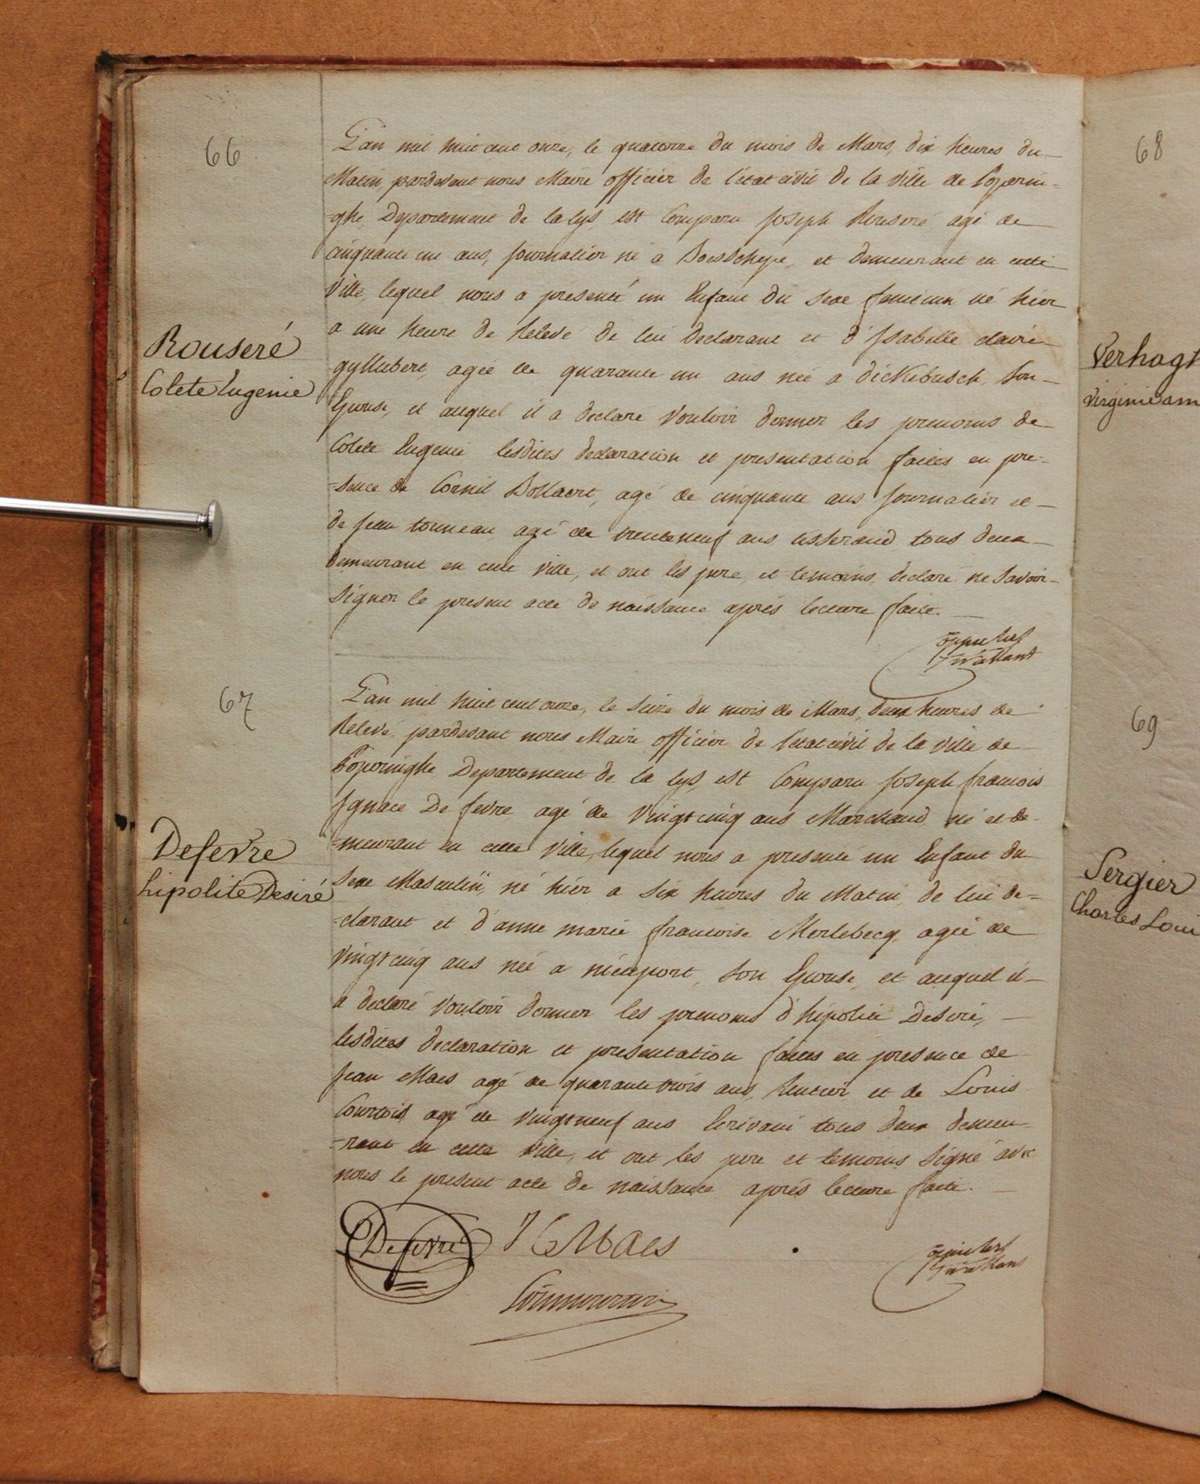 66
Rouseré
Colete Eugenie
L'an mil huit cent onze, le quatorze du mois de Mars, dix heures du
Matin, pardevant nous Maire officier de l'état civil de la ville de Poperin-
-ghe Departement de la Lys, est Comparu Joseph Rouseré agé de
cinquante un ans, journalier né a Boesschepe, et demeurant en cette
Ville, lequel nous a presenté un Enfant du sexe feminin né hier
a une heure de Relevé de lui declarant et d'Isabelle claire
gyllebert, agée de quarante un ans née a dickebusch, Son
Epouse, et auquel il a declaré vouloir donner les prenoms de
Colete Eugenie lesdites declaration et presentation faites en pre-
-sence de Cornil Bollaert, agé de cinquante ans journalier et
de jean tonneau agé de trenteneuf ans tisserand tous deux
demeurant en cette ville, et ont les pere, et temoins, declaré ne savoir
Signer le present acte de naissance après lecture faite.
67
Defevre
hipolite Desiré
L'an mil huit cent onze, le Seize du mois de Mars, deux heures de
Relevé, pardevant nous Maire officier de l'état civil de la ville de
Poperinghe Departement de la Lys est Comparu Joseph francois
Ignace De fevre agé de Vingt cinq ans Marchand né et de-
-meurant en cette Ville, lequel nous a presenté un Enfant du
Sexe Masculin né hier a six heures du Matin, de lui de-
-clarant et d'anne marie francoise Merlebecq agée de
Vingt cinq ans née a nieuport, son Epouse, et auquel il
a declaré vouloir donner les prenoms d'hipolite Desiré,
lesdites declaration et presentation faites en presence de
Jean Maes agé de quarante trois ans, Rentier et de Louis
Courtois, agé de vingt neuf ans Ecrivain tous deux demeu-
-rant en cette Ville, et ont les pere et temoins Signé avec
nous le present acte de naissance après lecture faite.
Defevre
Maes
68
Verhagt
Virginie am
69
Sergier
Charles Loui